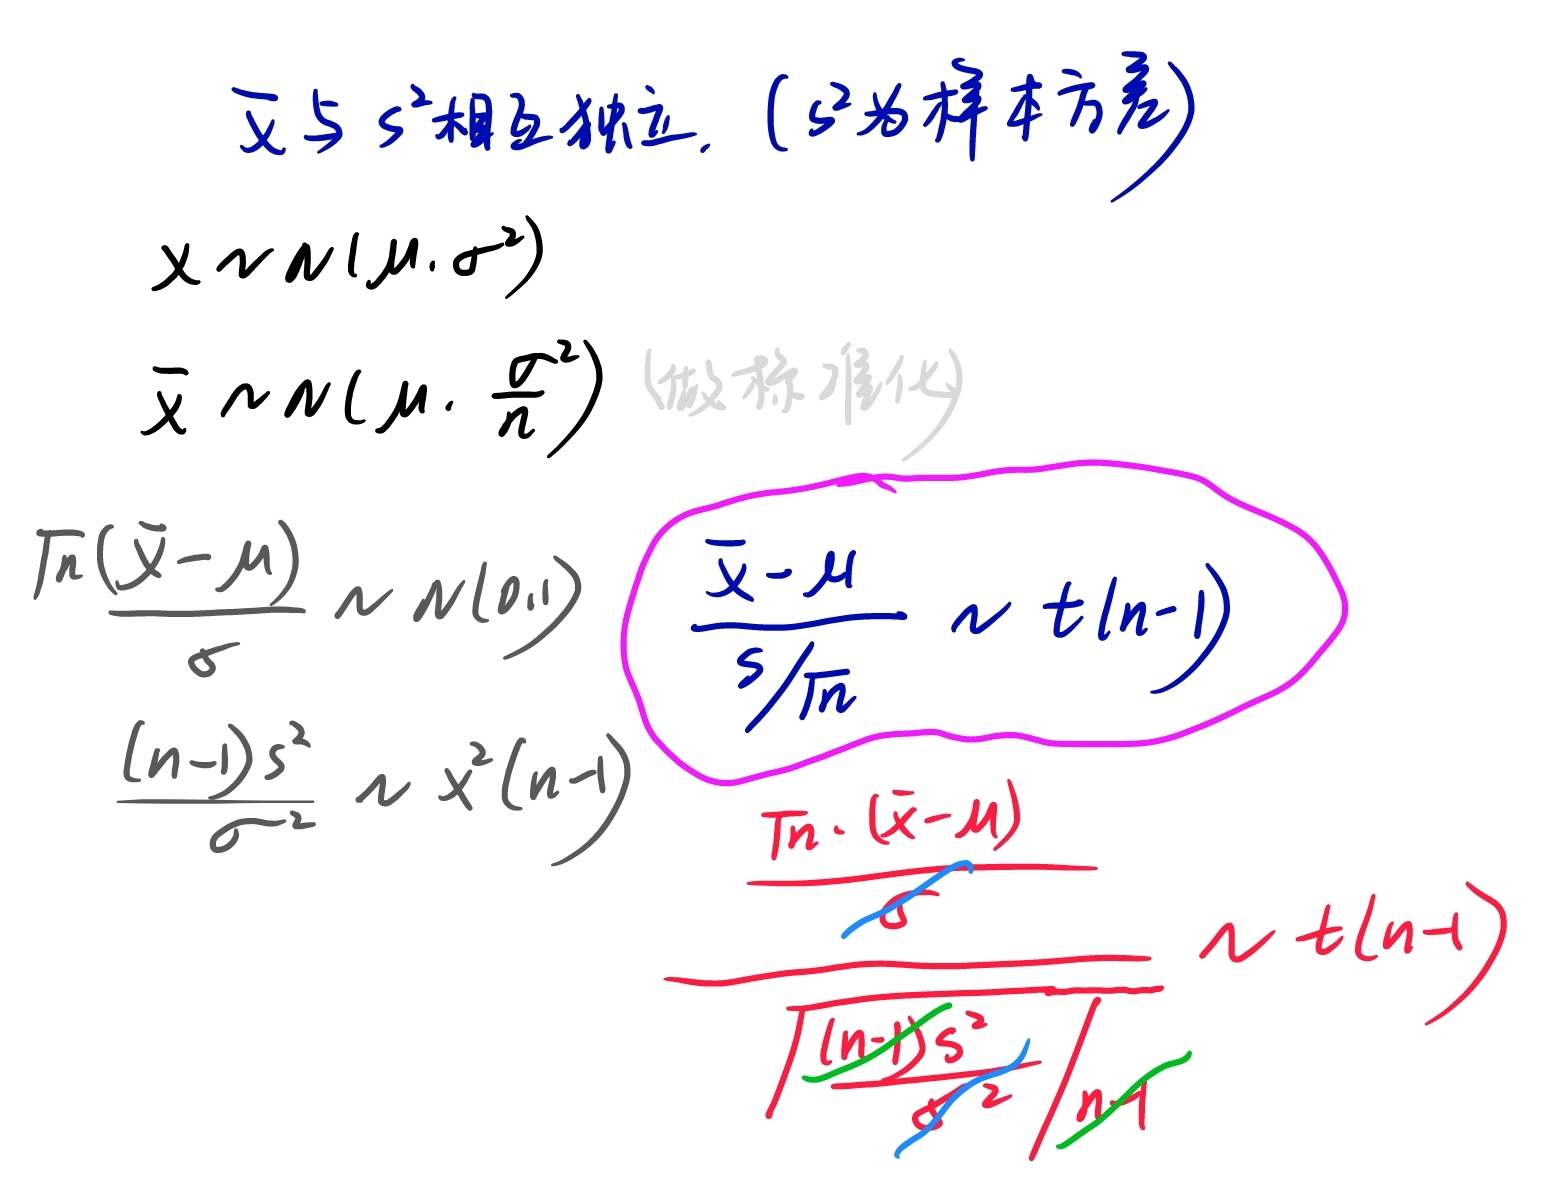 x̄与s²相互独立. (s²为样本方差)
x ~ N(μ. σ²)
x̄ ~ N(μ. σ²/n) (做标准化)
√n(x̄-μ)/σ ~ N(0,1)
(x̄-μ)/(s/√n) ~ t(n-1)
(n-1)s²/σ² ~ x²(n-1)
(√n·(x̄-μ)/σ)/√((n-1)s²/σ²/n-1) ~ t(n-1)